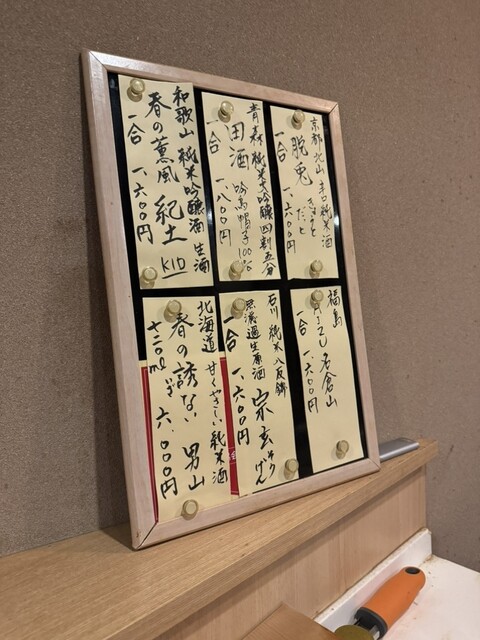 京都北山 辛口純米酒
脱兎 きょうと だっと
一合 一、六〇〇円
青森 純米大吟醸 四割五分
田酒 吟烏帽子100%
一合 一、八〇〇円
和歌山 純米吟醸酒 生酒
春の薫風 紀土 KID
一合 一、六〇〇円
福島
名倉山
一合 一、六〇〇円
石川 純米 八反錦
無濾過生原酒 宗玄 そうげん
一合 一、六〇〇円
北海道 甘くやさしい純米酒
春の誘ない 男山
七二〇ml 六、〇〇〇円